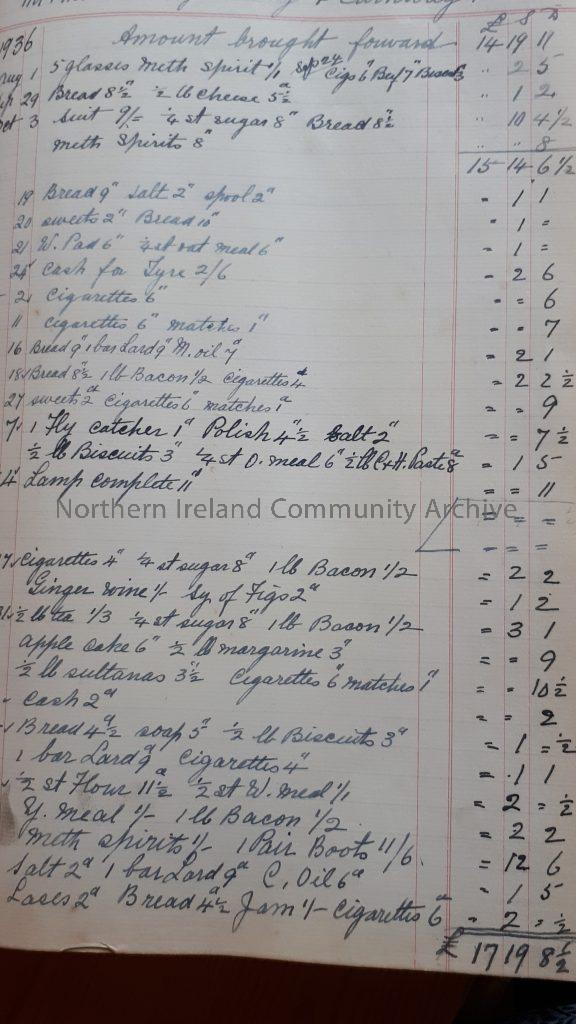 £ S D
1936 Amount brought forward 14 19 11
Aug 1 5 glasses meth spirit 1/1 Sep 24 Cigs 6" 7" " 2 5
29 Bread 8½ ½ lb cheese 5½ᵈ " 1 2
Oct 3 Suit 9/= ¼ st sugar 8" Bread 8½ " 10 4½
meth spirits 8" " " 8
15 14 6½
19 Bread 9" salt 2" spool 2" " 1 1
20 sweets 2" Bread 10" " 1 =
21 W. Pad 6" ¼ st oat meal 6" " 1 =
24 cash for Tyre 2/6 = 2 6
2 Cigarettes 6" = = 6
11 cigarettes 6" matches 1" " " 7
16 Bread 9" 1 bar Lard 9" M. oil 7" = 2 1
18 Bread 8½ 1 lb Bacon 1/2 Cigarettes 4ᵈ = 2 2½
27 sweets 2ᵈ Cigarettes 6" matches 1ᵈ = = 9
7 1 Fly catcher 1" Polish 4½ Salt 2" = = 7½
½ lb Biscuits 3" ¼ st O. meal 6" ½ lb C&H. Paste 8ᵈ = 1 5
4 Lamp complete 11" = = 11
= = =
= = =
Northern Ireland Community Archive
17 Cigarettes 4" ¼ st sugar 8" 1 lb Bacon 1/2 = 2 2
Ginger wine 1/- Sy. of Figs 2ᵈ = 1 2
31 ½ lb tea 1/3 ¼ st sugar 8" 1 lb Bacon 1/2 = 3 1
apple cake 6" ½ lb margarine 3" = = 9
½ lb sultanas 3½ Cigarettes 6" matches 1" = = 10½
cash 2ᵈ = = 2
Bread 4½ᵈ soap 5" ½ lb Biscuits 3ᵈ = 1 = ½
1 bar Lard 9ᵈ Cigarettes 4" = 1 1
½ st Flour 11½ ½ st W. meal 1/1 = 2 = ½
Y. meal 1/- 1 lb Bacon 1/2 = 2 2
meth spirits 1/- 1 Pair Boots 11/6 = 12 6
Salt 2ᵈ 1 bar Lard 9ᵈ C. Oil 6ᵈ " 1 5
Lases 2ᵈ Bread 4½ᵈ Jam 1/- Cigarettes 6ᵈ " 2 = ½
£ 17 19 8½